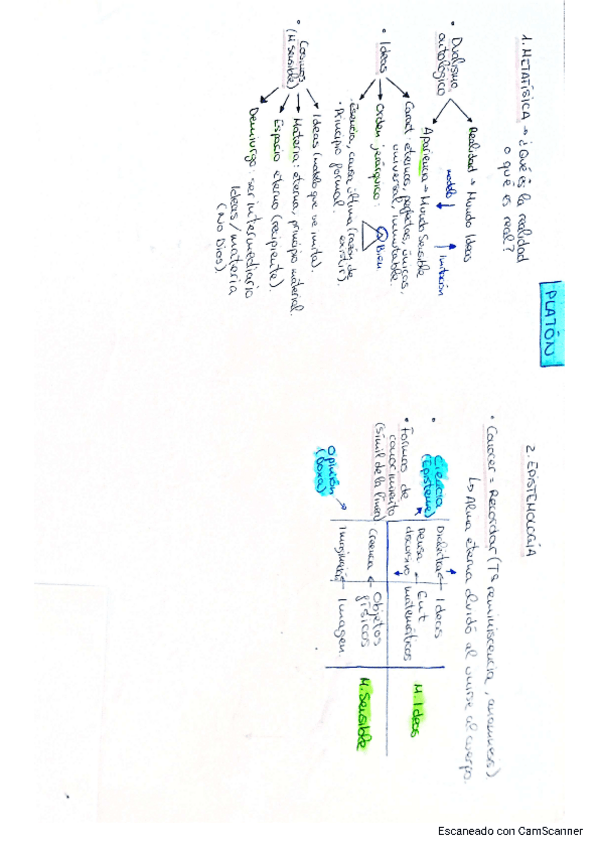 PLATÓN
1. METAFÍSICA → ¿Qué es la realidad
o qué es real?
• Dualismo
ontológico
Realidad = Mundo Ideas
modelo ↓ ↑ Imitación
Apariencia = Mundo Sensible
• Ideas
Caract: eternas, perfectas, únicas,
universal, inmutable.
Orden jerárquico: Bien
· Esencia, causa última (razón de
existir).
· Principio formal.
• Cosmos
(M sensible)
Ideas (modelo que se imita).
Materia: eterna, principio material.
Espacio eterno (recipiente).
Demiurgo: ser intermediario
Ideas/materia
(No Dios).
2. EPISTEMOLOGÍA
• Conocer = Recordar (Tª reminiscencia, anamnesis)
↳ Alma eterna olvidó al unirse al cuerpo.
• Formas de
conocimiento
(símil de la línea)
Ciencia
(Episteme)
Dialéctica ← Ideas
Pensa. ← Ent
discursivo matemáticos
M. Ideas
Opinión
(Doxa)
Creencia ← Objetos
físicos
Imaginación ← Imagen.
M. Sensible
Escaneado con CamScanner